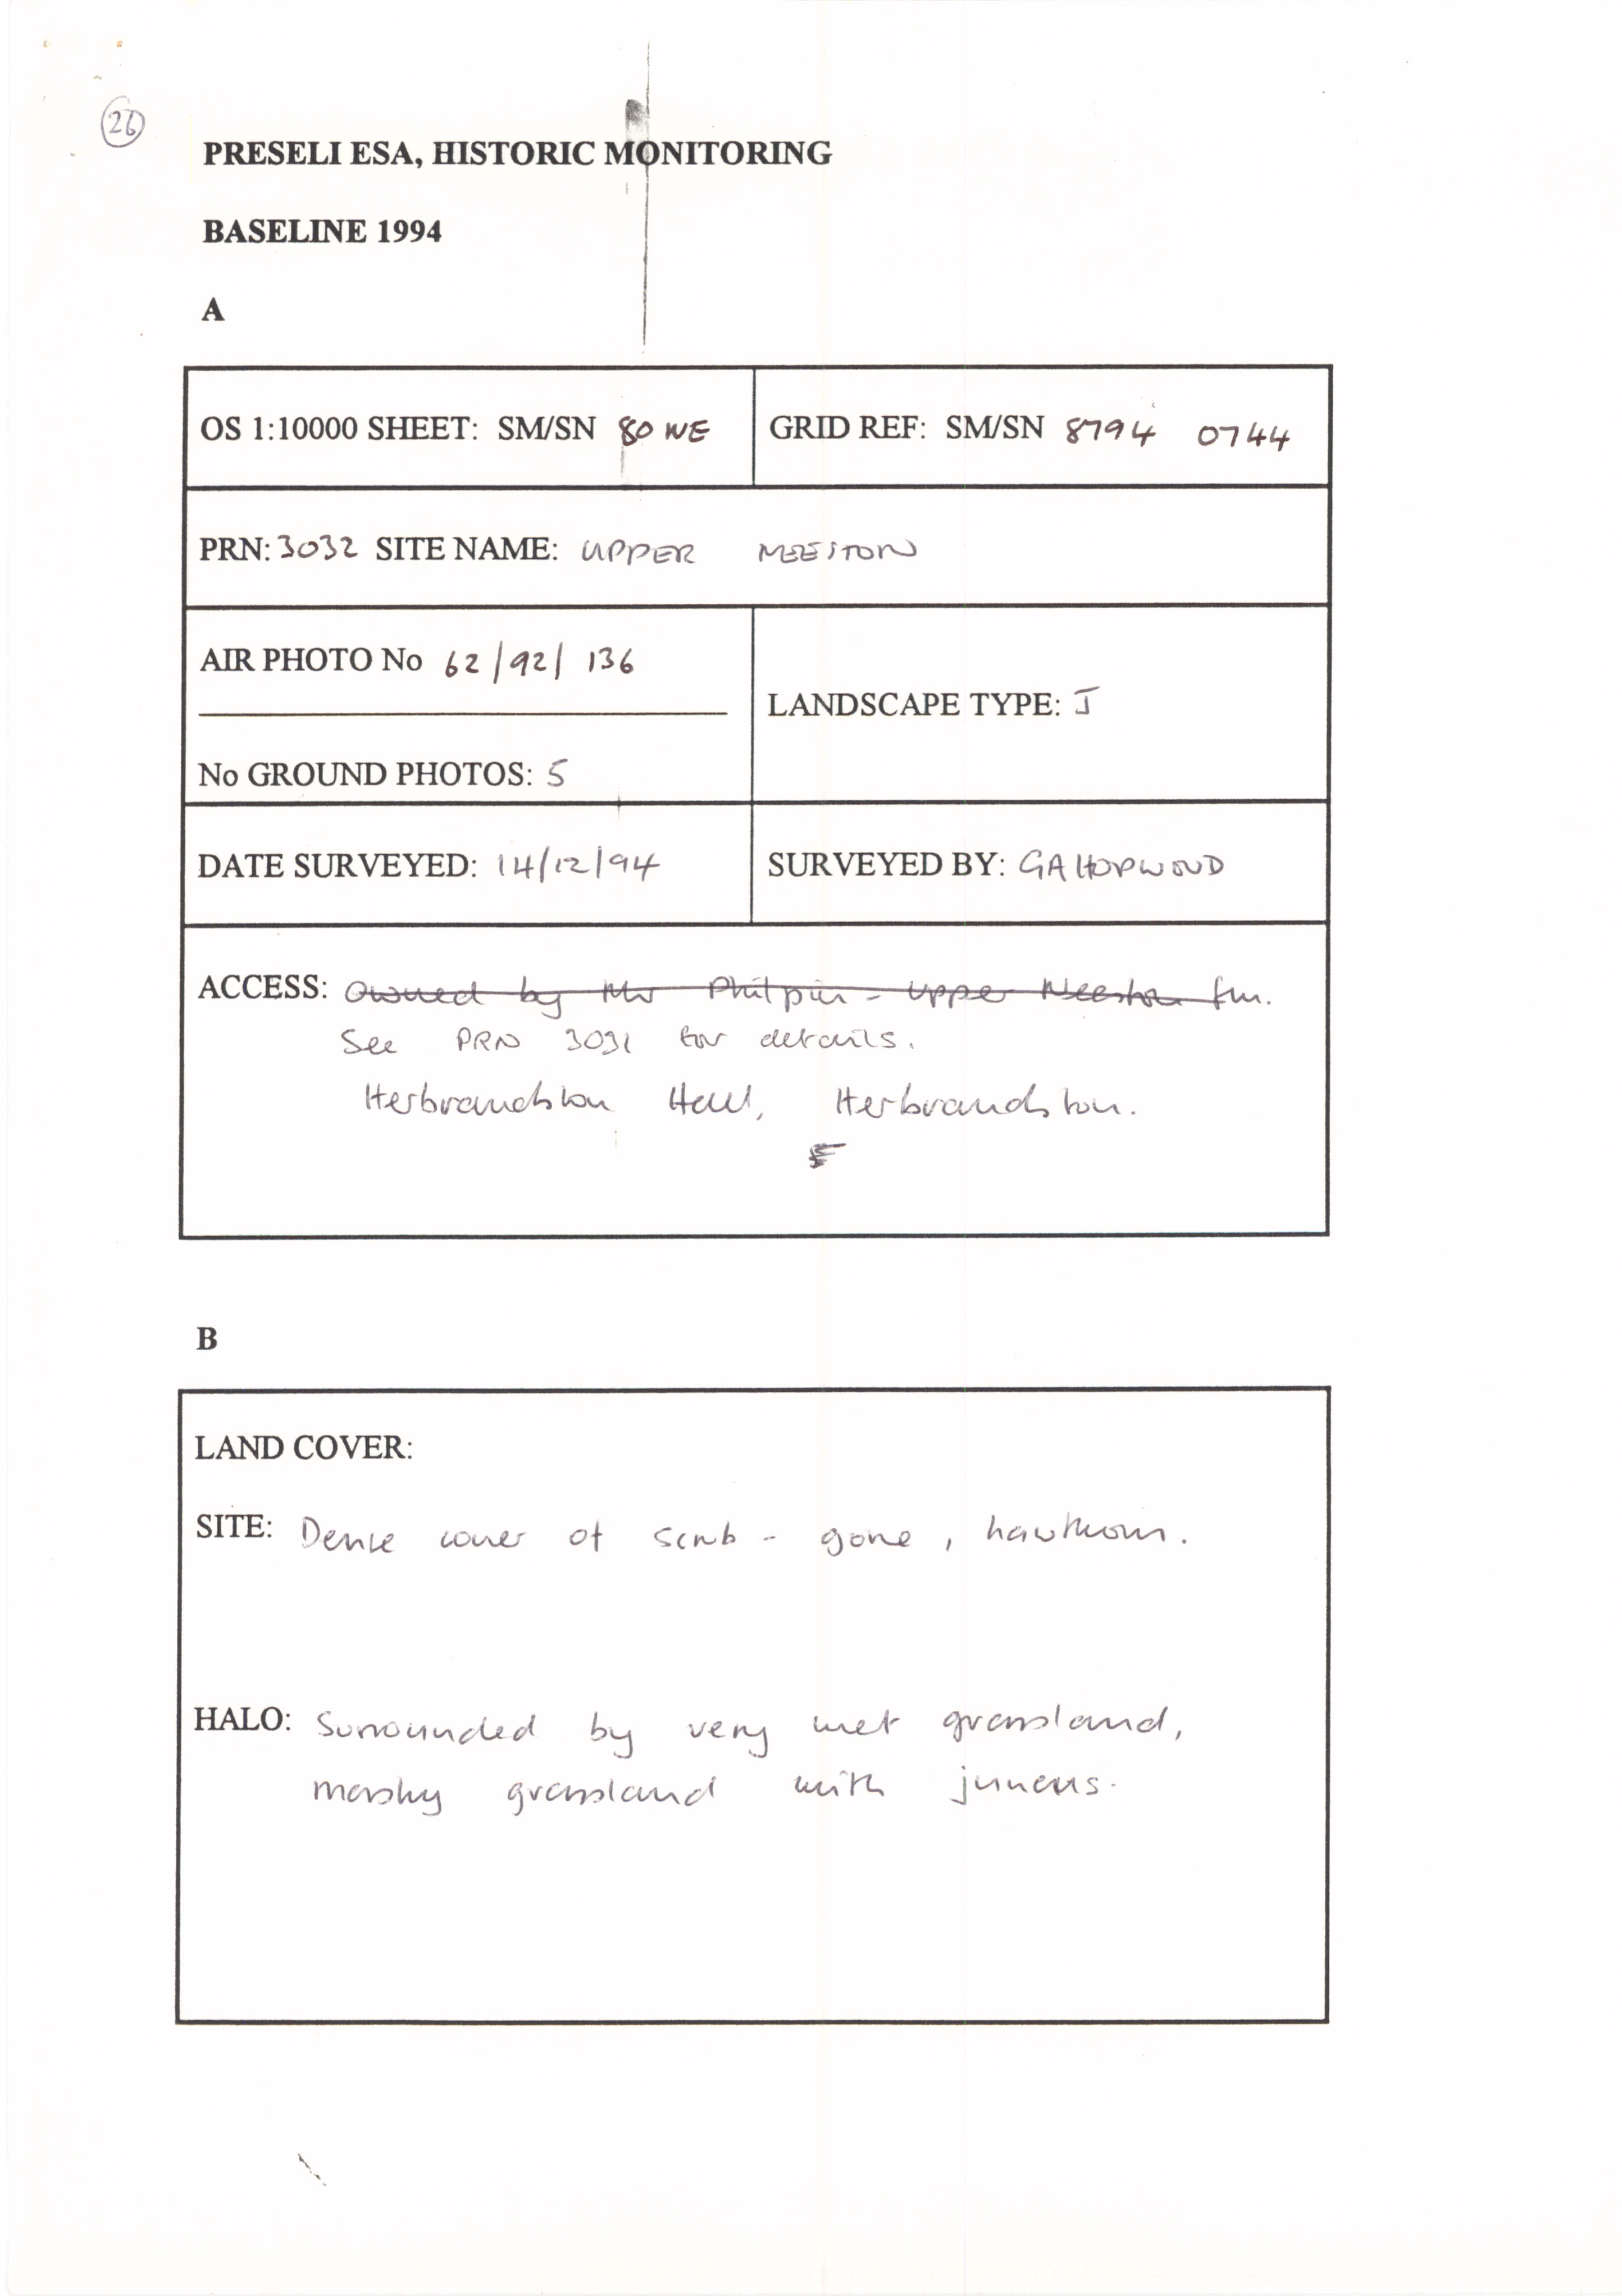 26
PRESELI ESA, HISTORIC MONITORING
BASELINE 1994
A
OS 1:10000 SHEET: SM/SN 80 NE
GRID REF: SM/SN 8794 0744
PRN: 3032 SITE NAME: UPPER NEESTON
AIR PHOTO No 62/92/136
LANDSCAPE TYPE: J
No GROUND PHOTOS: 5
DATE SURVEYED: 14/12/94
SURVEYED BY: GA HOPWOOD
ACCESS: Owned by Mr Philpin - Upper Neeston fm.
See PRN 3031 for details.
Herbrandston Hall, Herbrandston.
B
LAND COVER:
SITE: Dense cover of scrub - gorse, hawthorn.
HALO: Surrounded by very wet grassland,
marshy grassland with juncus.